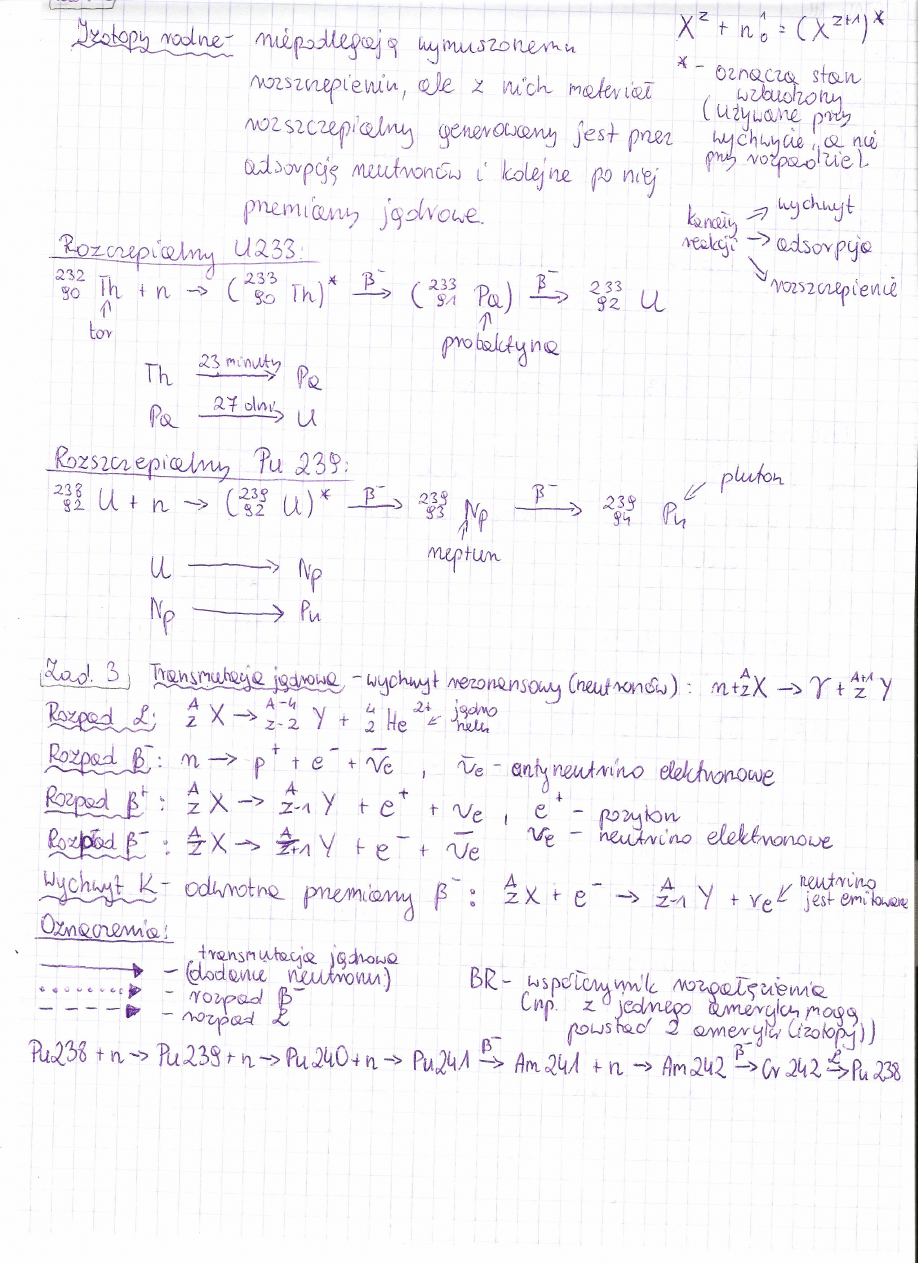 Izotopy rodne - niepodlegają wymuszonemu
rozszczepieniu, ale z nich materiał
rozszczepialny generowany jest przez
adsorpcję neutronów i kolejne po niej
przemiany jądrowe.
X^Z + n^1_0 = (X^{Z+1})*
* - oznacza stan
wzbudzony
(używane przy
wychwycie, a nie
przy rozpadzie).
kanały reakcji → wychwyt
→ adsorpcja
→ rozszczepienie
Rozczepialny U233:
^{232}_{90}Th + n → (^{233}_{90}Th)* β⁻→ (^{233}_{91}Pa) β⁻→ ^{233}_{92}U
↑ tor
↑ protaktyna
Th 23 minuty→ Pa
Pa 27 dni→ U
Rozszczepialny Pu 239:
^{238}_{92}U + n → (^{239}_{92}U)* β⁻→ ^{239}_{93}Np β⁻→ ^{239}_{94}Pu
↙ pluton
↑ neptun
U → Np
Np → Pu
Zad. 3 Transmutacja jądrowa - wychwyt rezonansowy (neutronów): n + ^A_Z X → γ + ^{A+1}_Z Y
Rozpad α: ^A_Z X → ^{A-4}_{Z-2} Y + ^4_2 He^{2+} ← jądro helu
Rozpad β⁻: n → p⁺ + e⁻ + ν̄e , ν̄e - antyneutrino elektronowe
Rozpad β⁺: ^A_Z X → ^A_{Z-1} Y + e⁺ + νe , e⁺ - pozyton
νe - neutrino elektronowe
Rozpad β⁻: ^A_Z X → ^A_{Z+1} Y + e⁻ + ν̄e
Wychwyt K - odwrotna przemiany β⁻: ^A_Z X + e⁻ → ^A_{Z-1} Y + νe ← neutrino jest emitowane
Oznaczenia:
→ - transmutacja jądrowa
(dodanie neutronu)
····▶ - rozpad β⁻
- - -▶ - rozpad α
BR - współczynnik rozgałęzienia
(np. z jednego ameryku mogą
powstać 2 ameryki (izotopy))
Pu238 + n → Pu239 + n → Pu240 + n → Pu241 β⁻→ Am241 + n → Am242 β⁻→ Cr242 α→ Pu238